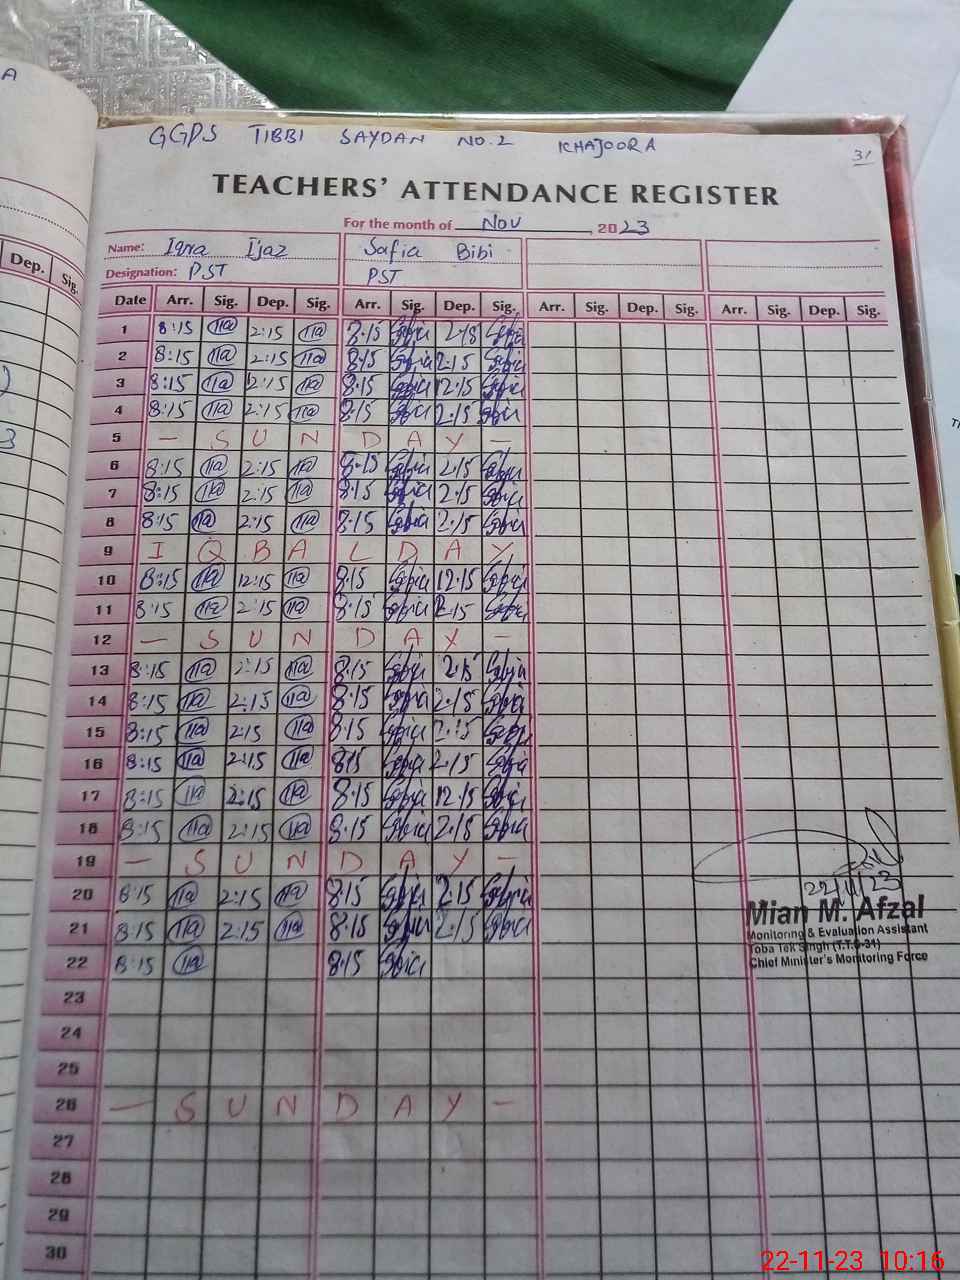 A
GGPS TIBBI SAYDAN NO.2 KHAJOORA
31
TEACHERS' ATTENDANCE REGISTER
For the month of Nov, 2023
Name: Iqra Ijaz Safia Bibi
Designation: PST PST
Dep. Sig.
Date Arr. Sig. Dep. Sig. Arr. Sig. Dep. Sig. Arr. Sig. Dep. Sig. Arr. Sig. Dep. Sig.
1 8:15 2:15 8.15 2.15
2 8:15 2:15 8.15 2.15
3 8:15 12:15 8.15 12.15
4 8:15 2:15 8.15 2.15
5 - S U N D A Y -
6 8:15 2:15 8.15 2.15
7 8:15 2:15 8.15 2.15
8 8:15 2:15 8.15 2.15
9 I Q B A L D A Y
10 8:15 12:15 8.15 12.15
11 8:15 2:15 8.15 2.15
12 - S U N D A Y -
13 8:15 2:15 8.15 2.15
14 8:15 2:15 8.15 2.15
15 8:15 2:15 8.15 2.15
16 8:15 2:15 8.15 2.15
17 8:15 2:15 8.15 12.15
18 8:15 2:15 8.15 2.15
19 - S U N D A Y -
20 8:15 2:15 8.15 2.15
21 8:15 2:15 8.15 2.15
22 8:15 8.15
23
24
25
26 - S U N D A Y -
27
28
29
30
22/11/23
Mian M. Afzal
Monitoring & Evaluation Assistant
Toba Tek Singh (T.T.S-31)
Chief Minister's Monitoring Force
22-11-23 10:16